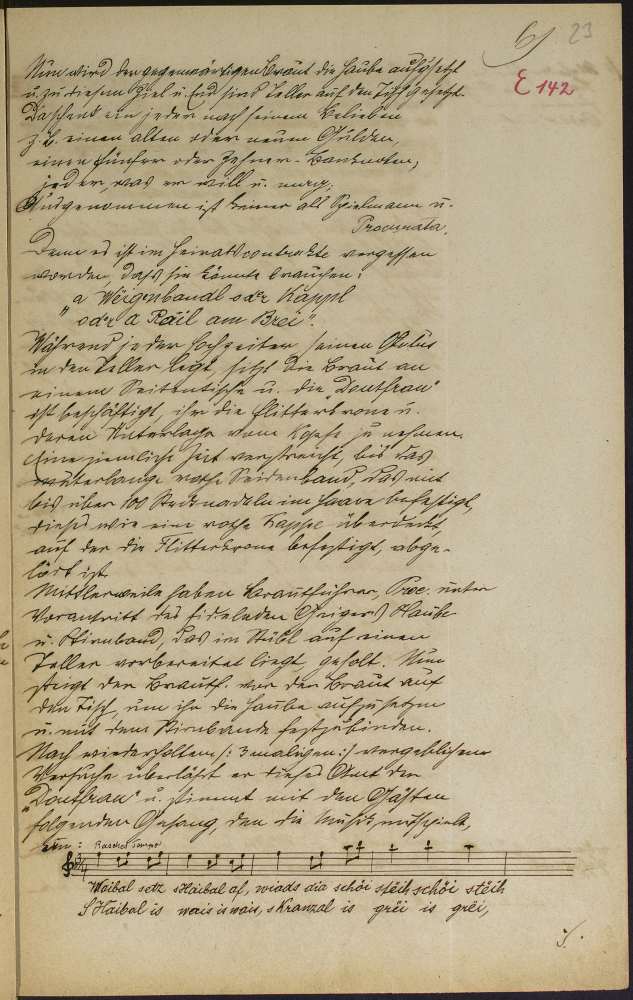 6) 23
E 142
Nun wird der gegenwärtigen Braut die Haube aufgesetzt
u. zu diesem Ziel u. End sind Teller auf den Tisch gesetzt.
Da schenkt ein jeder nach seinem Belieben
z. B. einen alten oder neuen Gulden,
einen Fünfer oder Zehner-Banknoten,
jeder, was er will u. mag;
Ausgenommen ist keiner als Spielmann u.
Procurator.
Denn es ist im Heiratscontrakte vergessen
worden, daß sie könnte brauchen:
"a Weigenbandl odr Kappl
odr a Rail am Brei".
Während jeder Hochzeiter seinen Obolus
in den Teller legt, sitzt die Braut an
einem Seitentische u. die "Doutfrau"
ist beschäftigt, ihr die Flitterkrone u.
deren Unterlage vom Kopfe zu nehmen.
Eine ziemliche Zeit verstreicht, bis das
meterlange rothe Seidenband, das mit
bis über 100 Stecknadeln im Haare befestigt,
dieses wie eine rothe Kappe überdeckt,
auf der die Flitterkrone befestigt, abge-
löst ist.
Mittlerweile haben Brautführer, Proc. unter
Vorantritt des fidelnden Geigers Haube
u. Stirnband, das im Stübl auf einem
Teller vorbereitet liegt, geholt. Nun
steigt der Brautf. vor der Braut auf
den Tisch, um ihr die Haube aufzusetzen
u. mit dem Stirnbande festzubinden.
Nach wiederholtem /: 3 maligen :/ vergeblichem
Versuche überläßt er dieses Amt der
"Doutfrau" u. stimmt mit den Gästen
folgenden Gesang, den die Musik mitspielt,
ein: Rasches Tempo
Waibal setz sHaibal af, wiads dia schöi stëih schöi stëih
S'Haibal is wais is wais, s Kranzal is grëi is grëi,